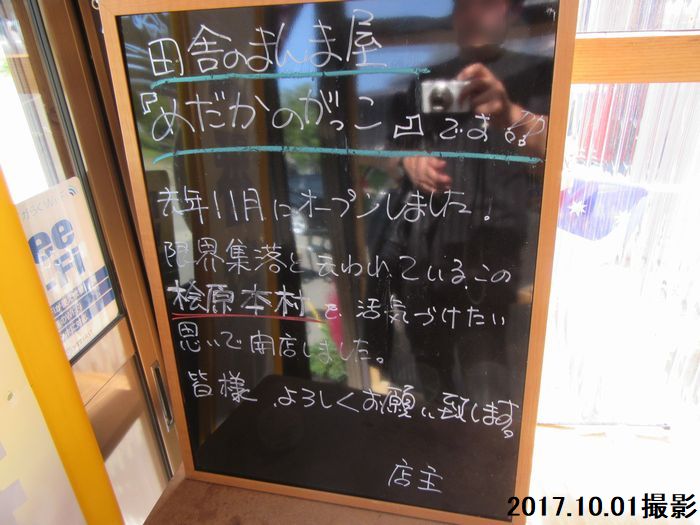 田舎のまんま屋
『めだかのがっこ』です!!
去年11月にオープンしました!
限界集落と云われている、この
桧原本村を、活気づけたい
思いで開店しました。
皆様、よろしくお願い致します。
店主
2017.10.01撮影